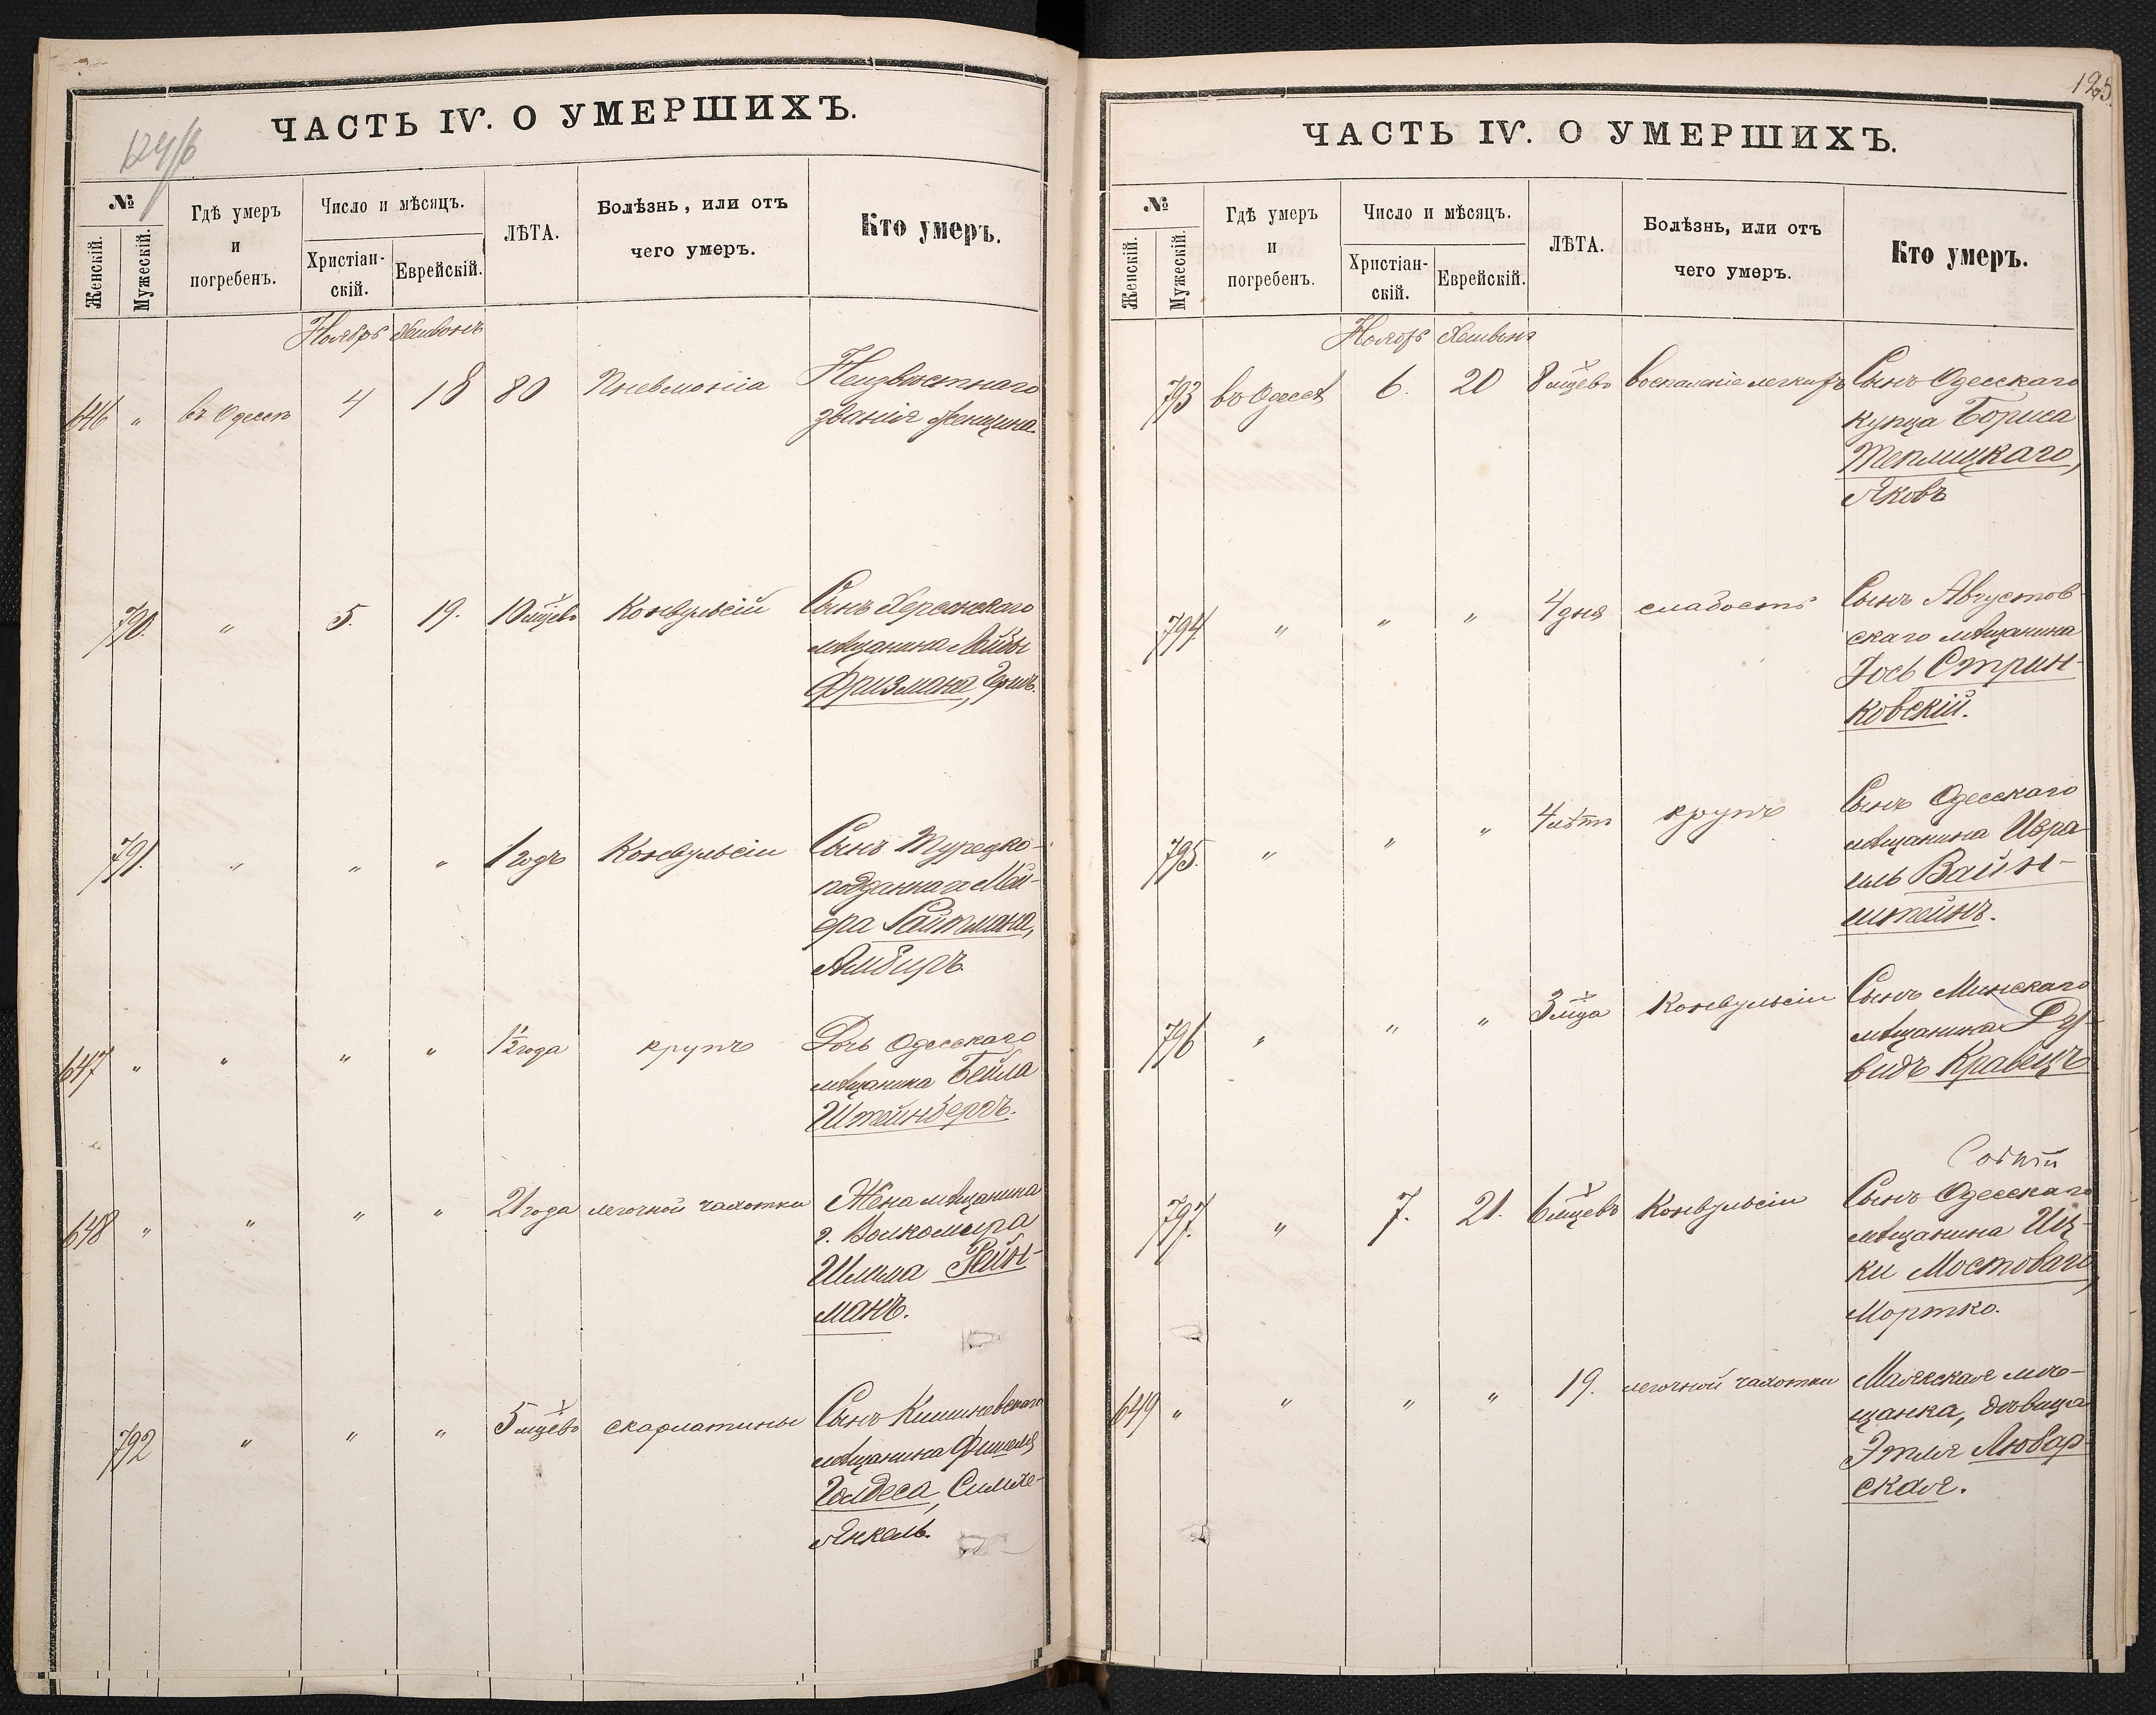 124/б
ЧАСТЬ IV. О УМЕРШИХЪ.
№
Женскій.
Мужескій.
Гдѣ умеръ
и
погребенъ.
Число и мѣсяцъ.
Христіан-
скій.
Еврейскій.
ЛѢТА.
Болѣзнь, или отъ
чего умеръ.
Кто умеръ.
Ноябрь Хешвонъ
646 " въ Одессѣ 4 18 80 Пневмоніа Неизвѣстнаго
званія женщина
790. " 5. 19. 10 мцевъ Конвульсій Сынъ Херсонскаго
мѣщанина Лейбы
Фризмана, Гершъ.
791. " " " 1 годъ Конвульсіи Сынъ Турецко-
подданнаго Мей-
ера Гайтмана,
Альбиръ
647 " " " " 1½ года крупъ Дочь Одесскаго
мѣщанина Бейла
Штейнбергъ.
648 " " " " 21 года легочной чахотки Жена мѣщанина
г. Волкомира
Шлима Рейн-
манъ.
792 " " " 5 мцевъ скарлатины Сынъ Кишиневскаго
мѣщанина Фишеля
Голдеса, Симхе-
Янкель.
125.
ЧАСТЬ IV. О УМЕРШИХЪ.
№
Женскій.
Мужескій.
Гдѣ умеръ
и
погребенъ.
Число и мѣсяцъ.
Христіан-
скій.
Еврейскій.
ЛѢТА.
Болѣзнь, или отъ
чего умеръ.
Кто умеръ.
Ноябрь Хешвонъ
793 въ Одессѣ 6. 20 8 мцевъ воспаленіе легкихъ Сынъ Одесскаго
купца Бориса
Теплицкаго,
Яковъ
794. " " " 4 дня слабость Сынъ Августов-
скаго мѣщанина
Іось Стрин-
ковскій.
795. " " " 4 лѣтъ крупъ Сынъ Одесскаго
мѣщанина Изра-
иль Вайн-
штейнъ.
796 " " " 3 мца Конвульсіи Сынъ Минскаго
мѣщанина Ду-
видъ Кравецъ
797. " 7. 21. 6 мцевъ Конвульсіи Сынъ Одесскаго
мѣщанина Иц-
ки Мостоваго,
Мортко.
649 " " " " 19. легочной чахотки Маякская мѣ-
щанка, дѣвица
Этля Любар-
ская.